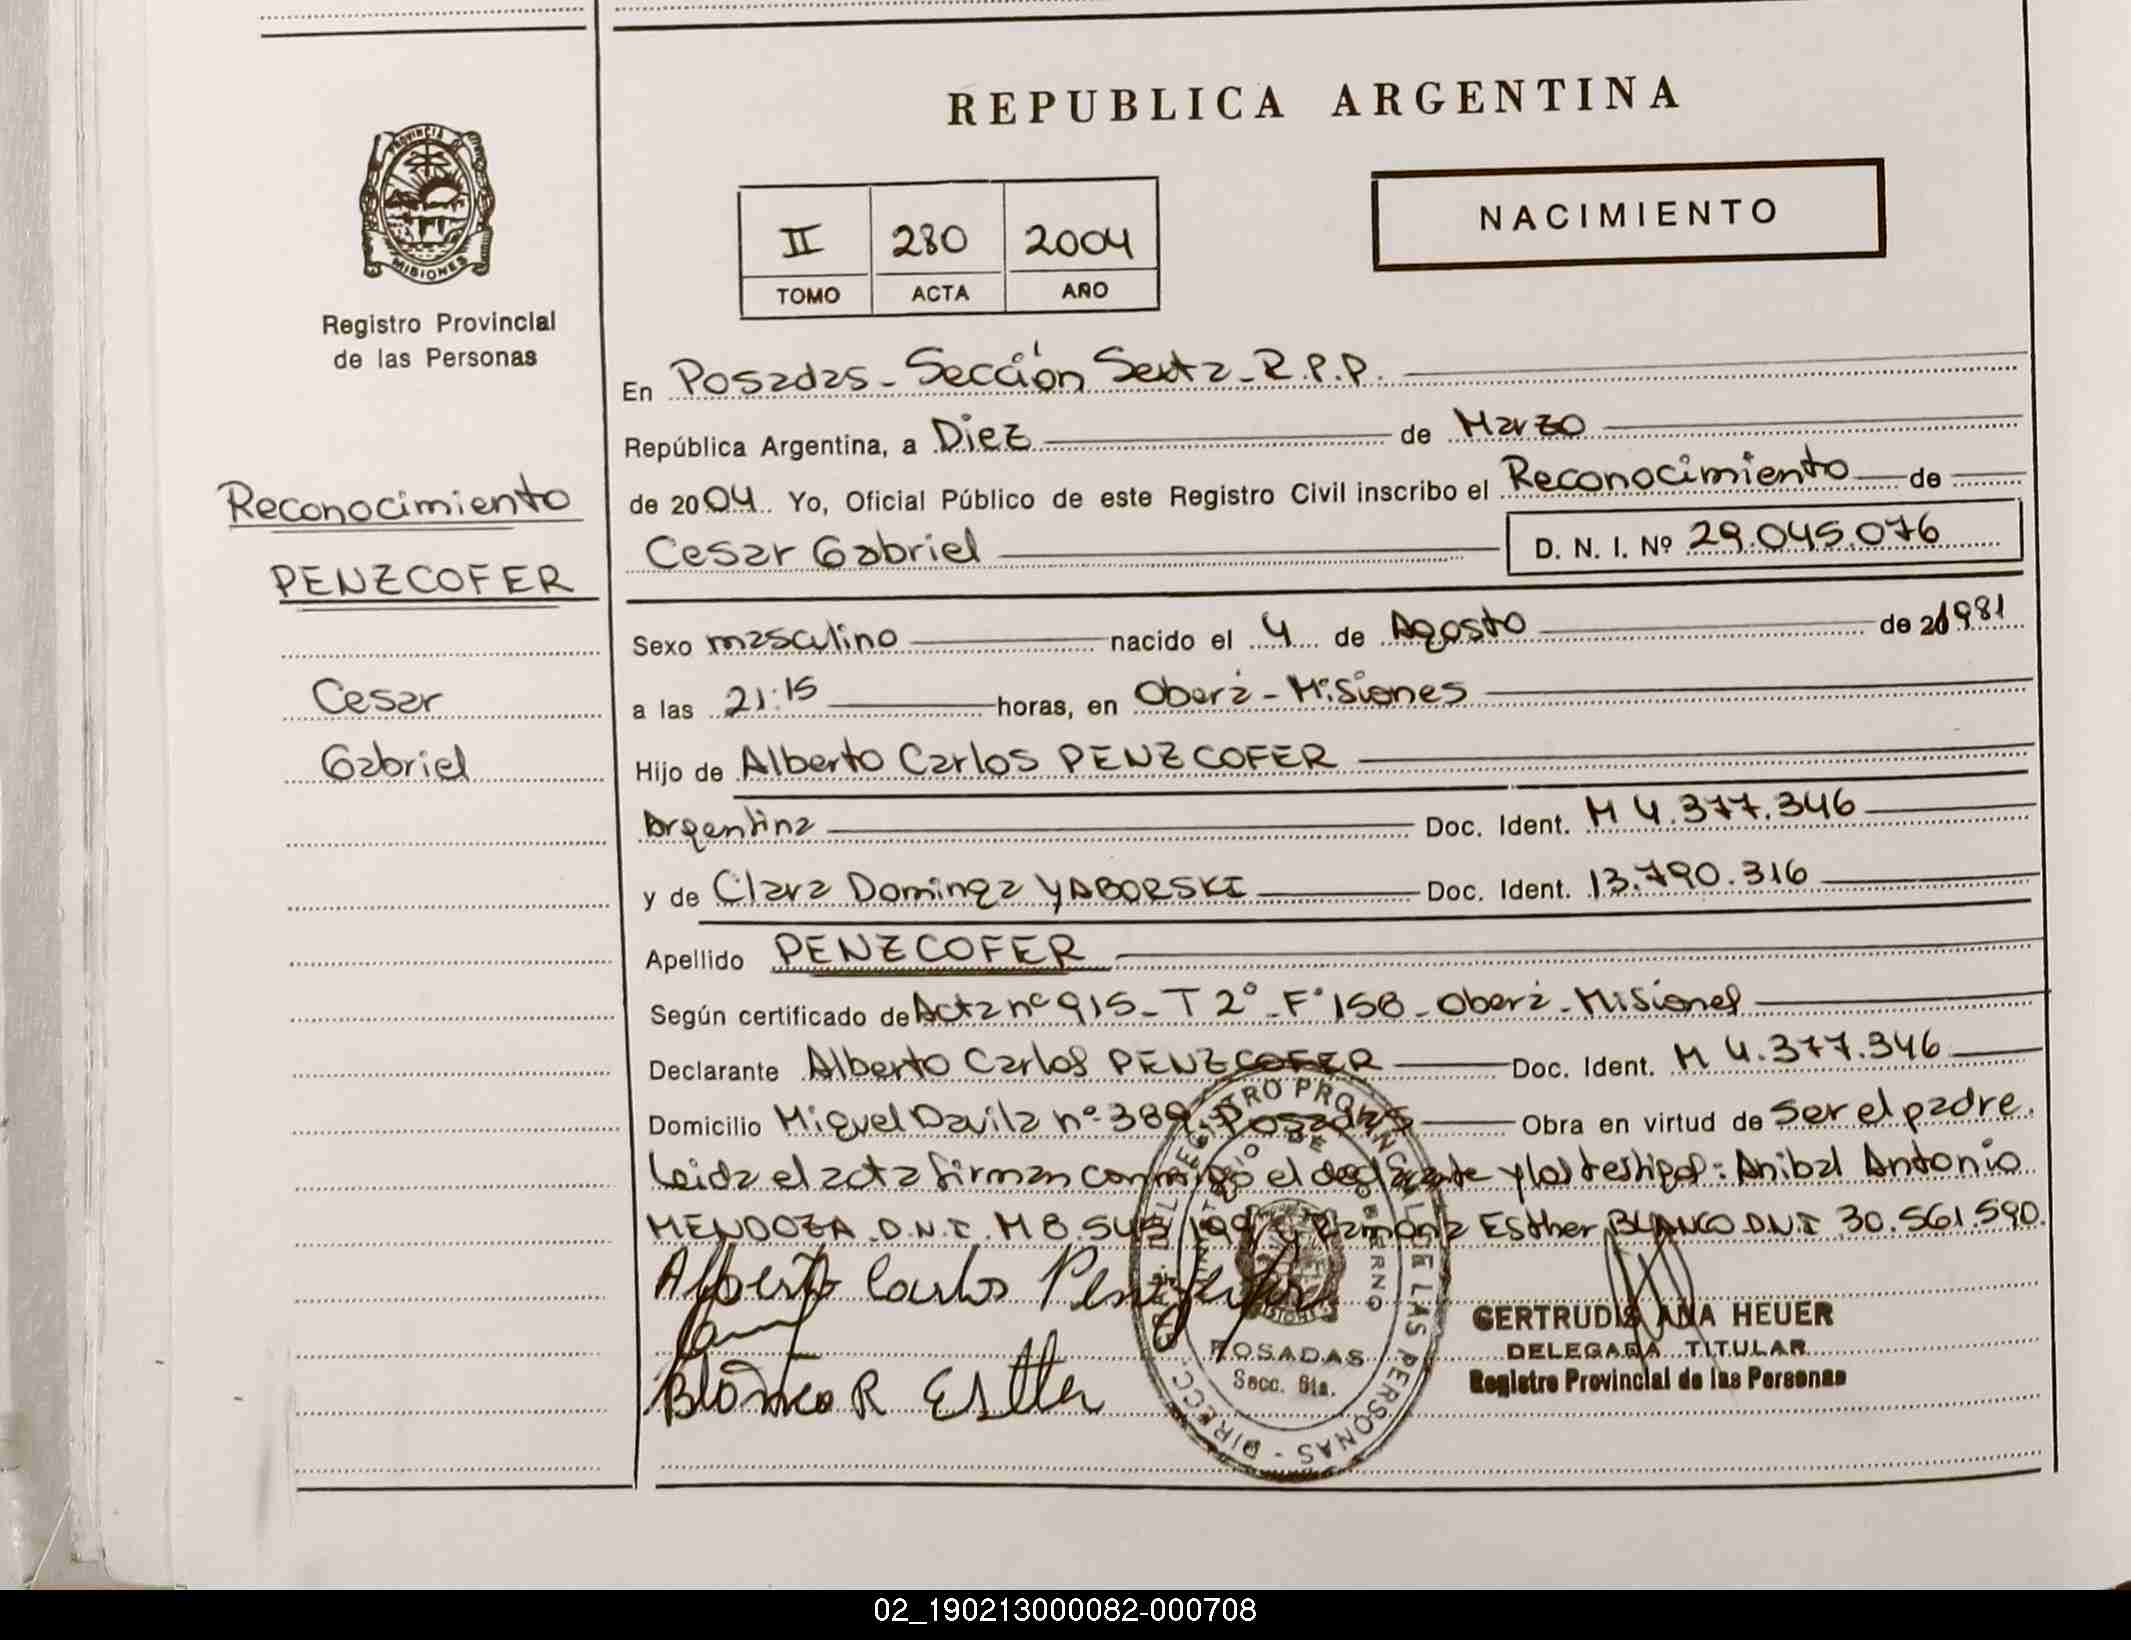 REPUBLICA ARGENTINA
PROVINCIA
MISIONES
Registro Provincial
de las Personas
II 280 2004
TOMO ACTA AÑO
NACIMIENTO
Reconocimiento
PENZCOFER
Cesar
Gabriel
En Posadas - Sección Sexta - R.P.P.
República Argentina, a Diez de Marzo
de 2004. Yo, Oficial Público de este Registro Civil inscribo el Reconocimiento de
Cesar Gabriel D. N. I. Nº 29.045.076
Sexo masculino nacido el 4 de Agosto de 1981
a las 21:15 horas, en Oberá - Misiones
Hijo de Alberto Carlos PENZCOFER
Argentina Doc. Ident. M 4.377.346
y de Clara Dominga YABORSKI Doc. Ident. 13.790.316
Apellido PENZCOFER
Según certificado de Acta nº 915 - T 2º - Fº 158 - Oberá - Misiones
Declarante Alberto Carlos PENZCOFER Doc. Ident. M 4.377.346
Domicilio Miguel Davila nº 389, Posadas Obra en virtud de Ser el padre.
Leida el acta firman conmigo el declarante y los testigos: Anibal Antonio
MENDOZA D.N.I. M 8.545.199 y Ramona Esther BLANCO DNI 30.561.590.
Alberto Carlos Penzcofer
Blanco R Esther
REGISTRO PROVINCIAL DE LAS PERSONAS - DIRECC.
MINISTERIO DE GOBIERNO
POSADAS
Secc. 6ta.
GERTRUDIS ANA HEUER
DELEGADA TITULAR
Registro Provincial de las Personas
02_190213000082-000708